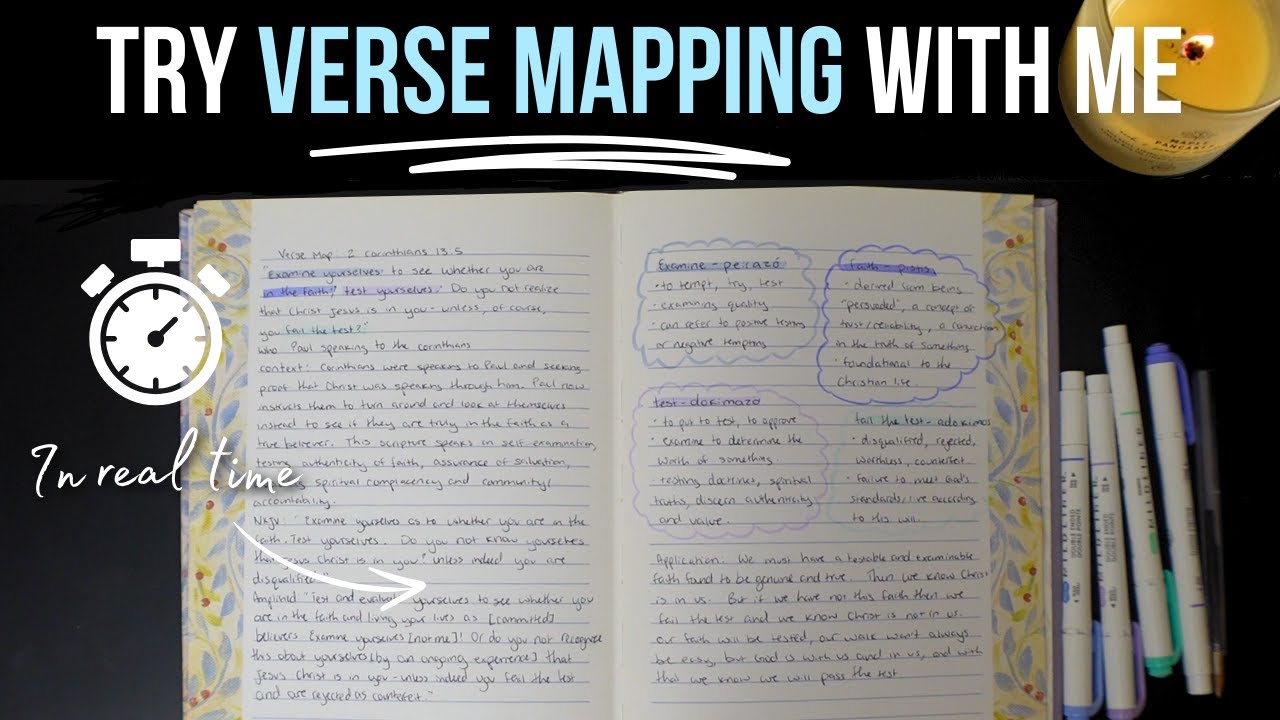 TRY VERSE MAPPING WITH ME
MAPLE
PANCAKES
In real time
Verse Map: 2 Corinthians 13:5
"Examine yourselves to see whether you are
in the faith; test yourselves. Do you not realize
that Christ Jesus is in you - unless, of course,
you fail the test?"
who: Paul speaking to the corinthians
context: Corinthians were speaking to Paul and seeking
proof that Christ was speaking through him. Paul now
instructs them to turn around and look at themselves
instead to see if they are truly in the faith as a
true believer. This scripture speaks in self examination,
testing authenticity of faith, assurance of salvation,
spiritual complacency and community/
accountability.
NKJV: "Examine yourselves as to whether you are in the
faith. Test yourselves. Do you not know yourselves
that Jesus Christ is in you? unless indeed you are
disqualified."
Amplified "Test and evaluate yourselves to see whether you
are in the faith and living your lives as [committed]
believers. Examine yourselves [not me]! Or do you not recognize
this about yourselves [by an ongoing experience] that
Jesus Christ is in you - unless indeed you fail the test
and are rejected as counterfeit."
Examine - peirazó
• to tempt, try, test
• examining quality
• can refer to positive testing
or negative tempting
faith - pistis
• derived from being
"persuaded", a concept of
trust/reliability, a conviction
in the truth of something
• foundational to the
Christian life.
test - dokimazo
• to put to test, to approve
• examine to determine the
worth of something
• testing doctrines, spiritual
truths, discern authenticity
and value.
fail the test - adokimos
• disqualified, rejected,
worthless, counterfeit
• failure to meet God's
standards/live according
to His will.
Application: We must have a testable and examinable
faith found to be genuine and true. Then we know Christ
is in us. But if we have not this faith then we
fail the test and we know Christ is not in us.
Our faith will be tested, our walk won't always
be easy, but God is with us and in us, and with
that we know we will pass the test
MILDLINER
DOUBLE ENDED
MILDLINER
DOUBLE ENDED
MILDLINER